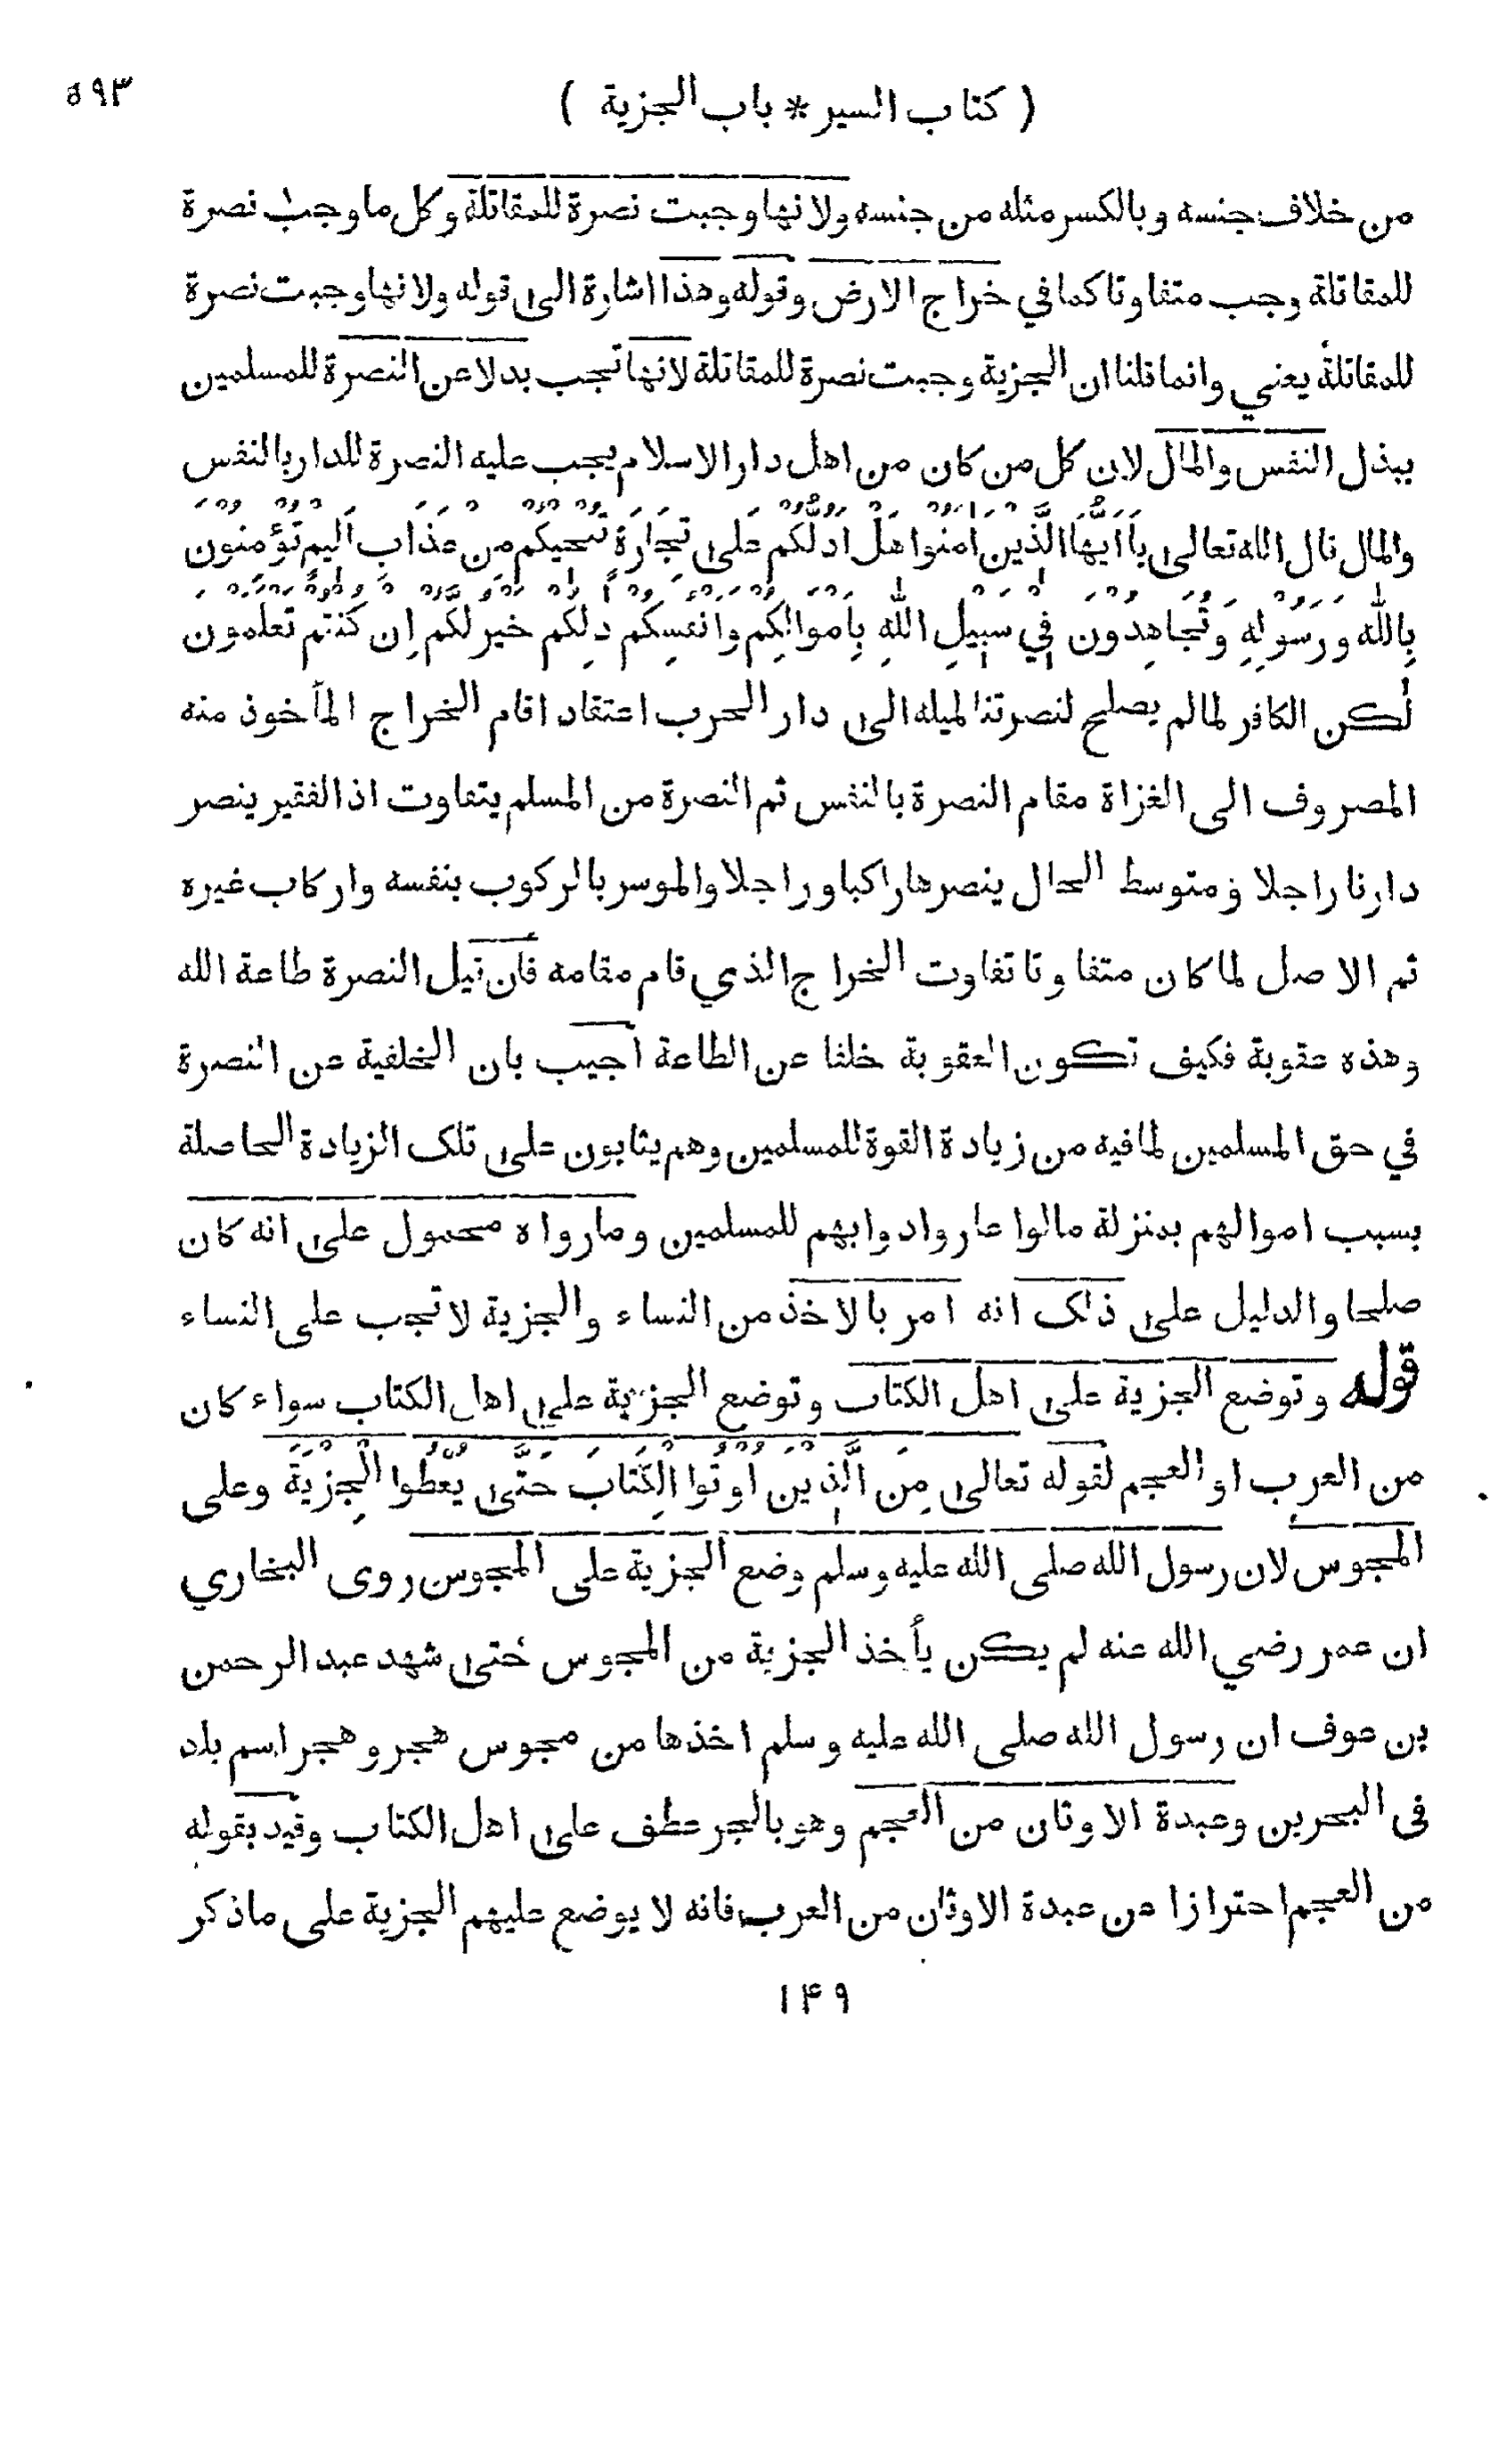 ( كتاب السير * باب الجزية ) ٥٩٣
من خلاف جنسه وبالكسر مثله من جنسه ولانها وجبت نصرة للمقاتلة وكل ما وجب نصرة
للمقاتلة وجب متفاوتا كما في خراج الارض وقوله وهذا اشارة الى قوله ولانها وجبت نصرة
للمقاتلة يعني وانما قلنا ان الجزية وجبت نصرة للمقاتلة لانها تجب بدلا عن النصرة للمسلمين
ببذل النفس والمال لان كل من كان من اهل دار الاسلام يجب عليه النصرة للدار بالنفس
والمال قال الله تعالى يا اَيُّهَا الَّذِينَ امَنُوا هَلْ اَدُلُّكُمْ عَلَى تِجَارَةٍ تُنْجِيكُمْ مِنْ عَذَابٍ اَلِيمٍ تُؤْمِنُونَ
بِاللهِ وَرَسُولِهِ وَتُجَاهِدُونَ فِي سَبِيلِ اللهِ بِاَمْوَالِكُمْ وَاَنْفُسِكُمْ ذلِكُمْ خَيْرٌ لَكُمْ اِنْ كُنْتُمْ تَعْلَمُونَ
لكن الكافر لما لم يصلح لنصرتنا لميله الى دار الحرب اعتقادا قام الخراج المأخوذ منه
المصروف الى الغزاة مقام النصرة بالنفس ثم النصرة من المسلم يتفاوت اذ الفقير ينصر
دارنا راجلا ومتوسط الحال ينصرها راكبا وراجلا والموسر بالركوب بنفسه واركاب غيره
ثم الاصل لما كان متفاوتا تفاوت الخراج الذي قام مقامه فان قيل النصرة طاعة الله
وهذه عقوبة فكيف تكون العقوبة خلفا عن الطاعة اجيب بان الخلفية عن النصرة
في حق المسلمين لما فيه من زيادة القوة للمسلمين وهم يثابون على تلك الزيادة الحاصلة
بسبب اموالهم بمنزلة مالوا عاروا دوابهم للمسلمين وما رواه محمول على انه كان
صلحا والدليل على ذلك انه امر بالاخذ من النساء والجزية لا تجب على النساء
قوله وتوضع الجزية على اهل الكتاب وتوضع الجزية على اهل الكتاب سواء كان
من العرب او العجم لقوله تعالى مِنَ الَّذِينَ اُوتُوا الْكِتَابَ حَتَّى يُعْطُوا الْجِزْيَةَ وعلى
المجوس لان رسول الله صلى الله عليه وسلم وضع الجزية على المجوس روى البخاري
ان عمر رضي الله عنه لم يكن يأخذ الجزية من المجوس حتى شهد عبد الرحمن
بن عوف ان رسول الله صلى الله عليه وسلم اخذها من مجوس هجر وهجر اسم بلد
فى البحرين وعبدة الاوثان من العجم وهو بالجر عطف على اهل الكتاب وقيد بقوله
من العجم احترازا عن عبدة الاوثان من العرب فانه لا يوضع عليهم الجزية على ما ذكر
١۴٩